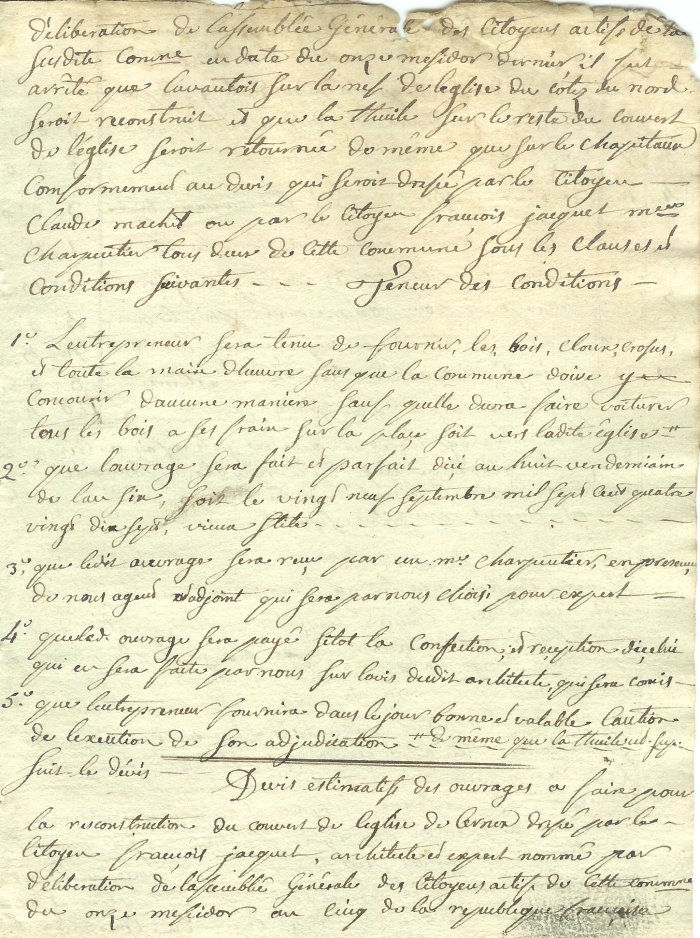 déliberation de lassemblée Générale des Citoyens actifs de la
susdite Comne en date du onze messidor dernier il fut
arrêté que lavantois sur la nef de leglise du côtez du nord
seroit reconstruit et que la thuile sur le reste du Couvert
de léglise seroit retournée de même que sur le Chapitaux
Conformement au devis qui seroit dresé par le Citoyen
Claude machet ou par le Citoyen françois jacquet mes
Charpentier tous deux de Cette Commune sous les Clauses et
Conditions suivantes - - - Teneur des Conditions -
1.° Lentrepreneur sera tenu de fournir, les bois, Cloux, Crosus,
et toute la main d'huvre sans que la Commune doive y
Concourir daucune maniere sauf quelle devra faire voiturer
tous les bois a ses frain sur la place soit vers ladite église
2.° que louvrage sera fait et parfait dici au huit vendemiaire
de lan six, soit le vingt neuf septembre mil sept Cent quatre
vingt dix sept, vieux stile - - -
3.° que ledit ouvrage sera reçu par un me Charpentier, en presence
de nous agent et adjoint qui sera par nous Choisi pour expert
4.° que led. ouvrage sera payé sitot la Confection, et réception dicelui
qui en sera faite par nous sur lavis dudit architecte, qui sera Comis
5.° que lentrepreneur fournira dans le jour bonne et valable Caution
de lexecution de son adjudication # de même que la thuile
suit le dévis - Devis estimatif des ouvrages a faire pour
la reconstruction du Couvert de leglise de Cernex dresé par le
Citoyen françois jacquet, architecte et expert nommé par
déliberation de lassemblée Générale des Citoyens actifs de Cette Comune
du onze messidor an Cinq de la republique française